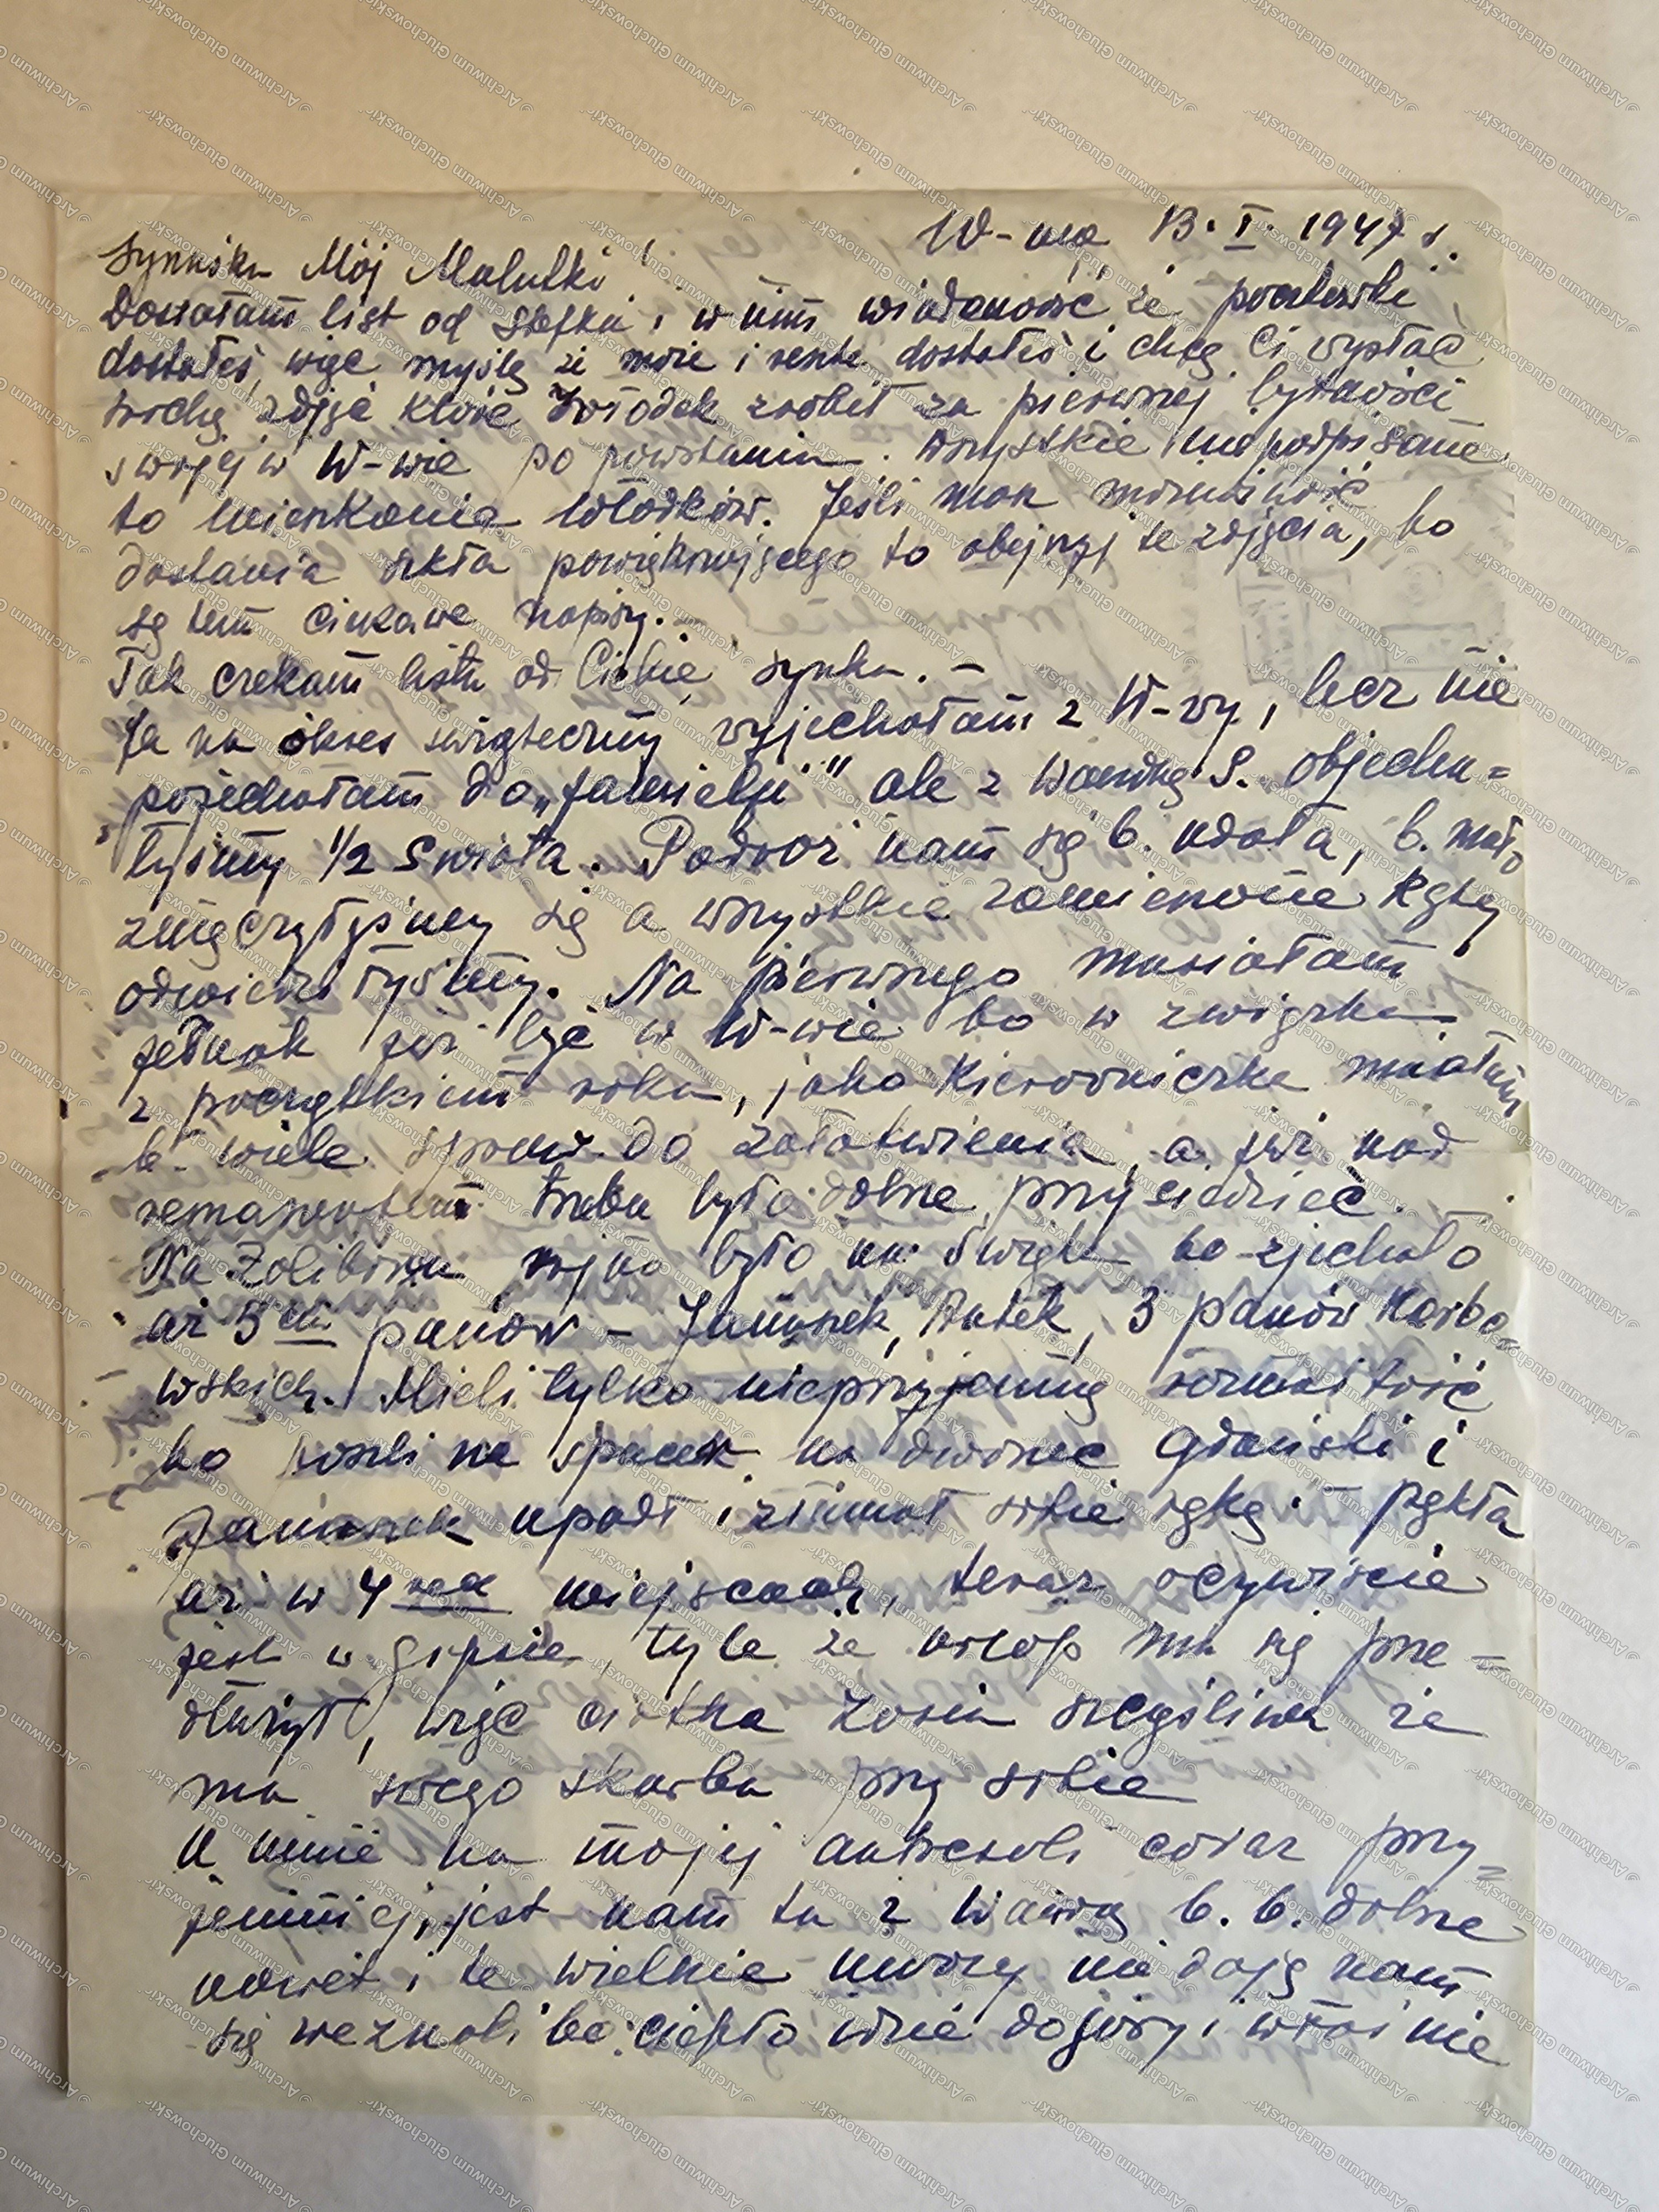 W-wa, 13. I. 1947 r.
Synusiu Mój Malutki!
Dostałam list od Stefka i w nim wiadomość że pocztówki
dostałeś, więc myślę że może i resztę dostałeś i chcę Ci wysłać
trochę zdjęć które Włodek zrobił za pierwszej bytności
swojej w W-wie po powstaniu. Wszystkie nie podpisane
to mieszkania Włodków. Jeśli masz możność
dostania szkła powiększającego to obejrzyj te zdjęcia, bo
są tam ciekawe napisy. –
Tak czekam listu od Ciebie synku. –
Ja na okres świąteczny wyjechałam z W-wy, lecz nie
pojechałam do „ ” ale z Wandą S. objecha=
łyśmy 1/2 świata. Podróż nam się b. udała, b. mało
zmęczyłyśmy się a wszystkie zamierzone kąty
odwiedziłyśmy. Na pierwszego musiałam
jednak już być w W-wie bo w związku
z początkiem roku, jako kierowniczka miałam
b. wiele spraw do załatwienia, a już nad
remanentem trzeba było dobrze przysiedzieć. –
Na Żoliborzu rojno było na Święta bo zjechało
aż 5ciu panów – Januszek, Antek, 3 panów Karbo=
wskich. Mieli tylko nieprzyjemną rozmaitość
bo poszli na spacer na dworzec Gdański i
Januszek upadł i złamał sobie rękę – pękła
aż w 4rech miejscach, teraz oczywiście
jest w gipsie, tyle że urlop mu się prze=
dłużył, więc ciotka Zosia szczęśliwa że
ma swego skarba przy sobie
U mnie na mojej antresoli coraz przy=
jemniej, jest nam tu z Wandą b. b. dobrze
nawet i te wielkie mrozy nie dają nam
się we znaki bo ciepło idzie do góry i właśnie